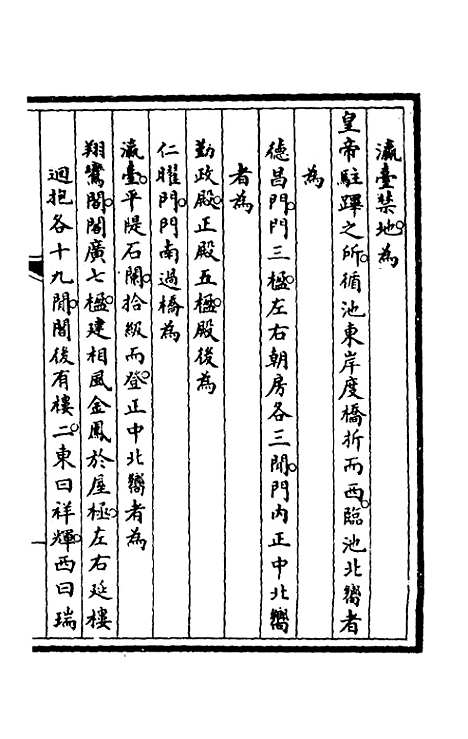 瀛臺禁地為
皇帝駐蹕之所循池東岸度橋折而西臨池北嚮者
為
德昌門門三楹左右朝房各三間門内正中北嚮
者為
勤政殿正殿五楹殿後為
仁曜門門南過橋為
瀛臺平隄石闌拾級而登正中北嚮者為
翔鸞閣閣廣七楹建相風金鳳於屋極左右延樓
迴抱各十九間閣後有樓二東曰祥輝西曰瑞